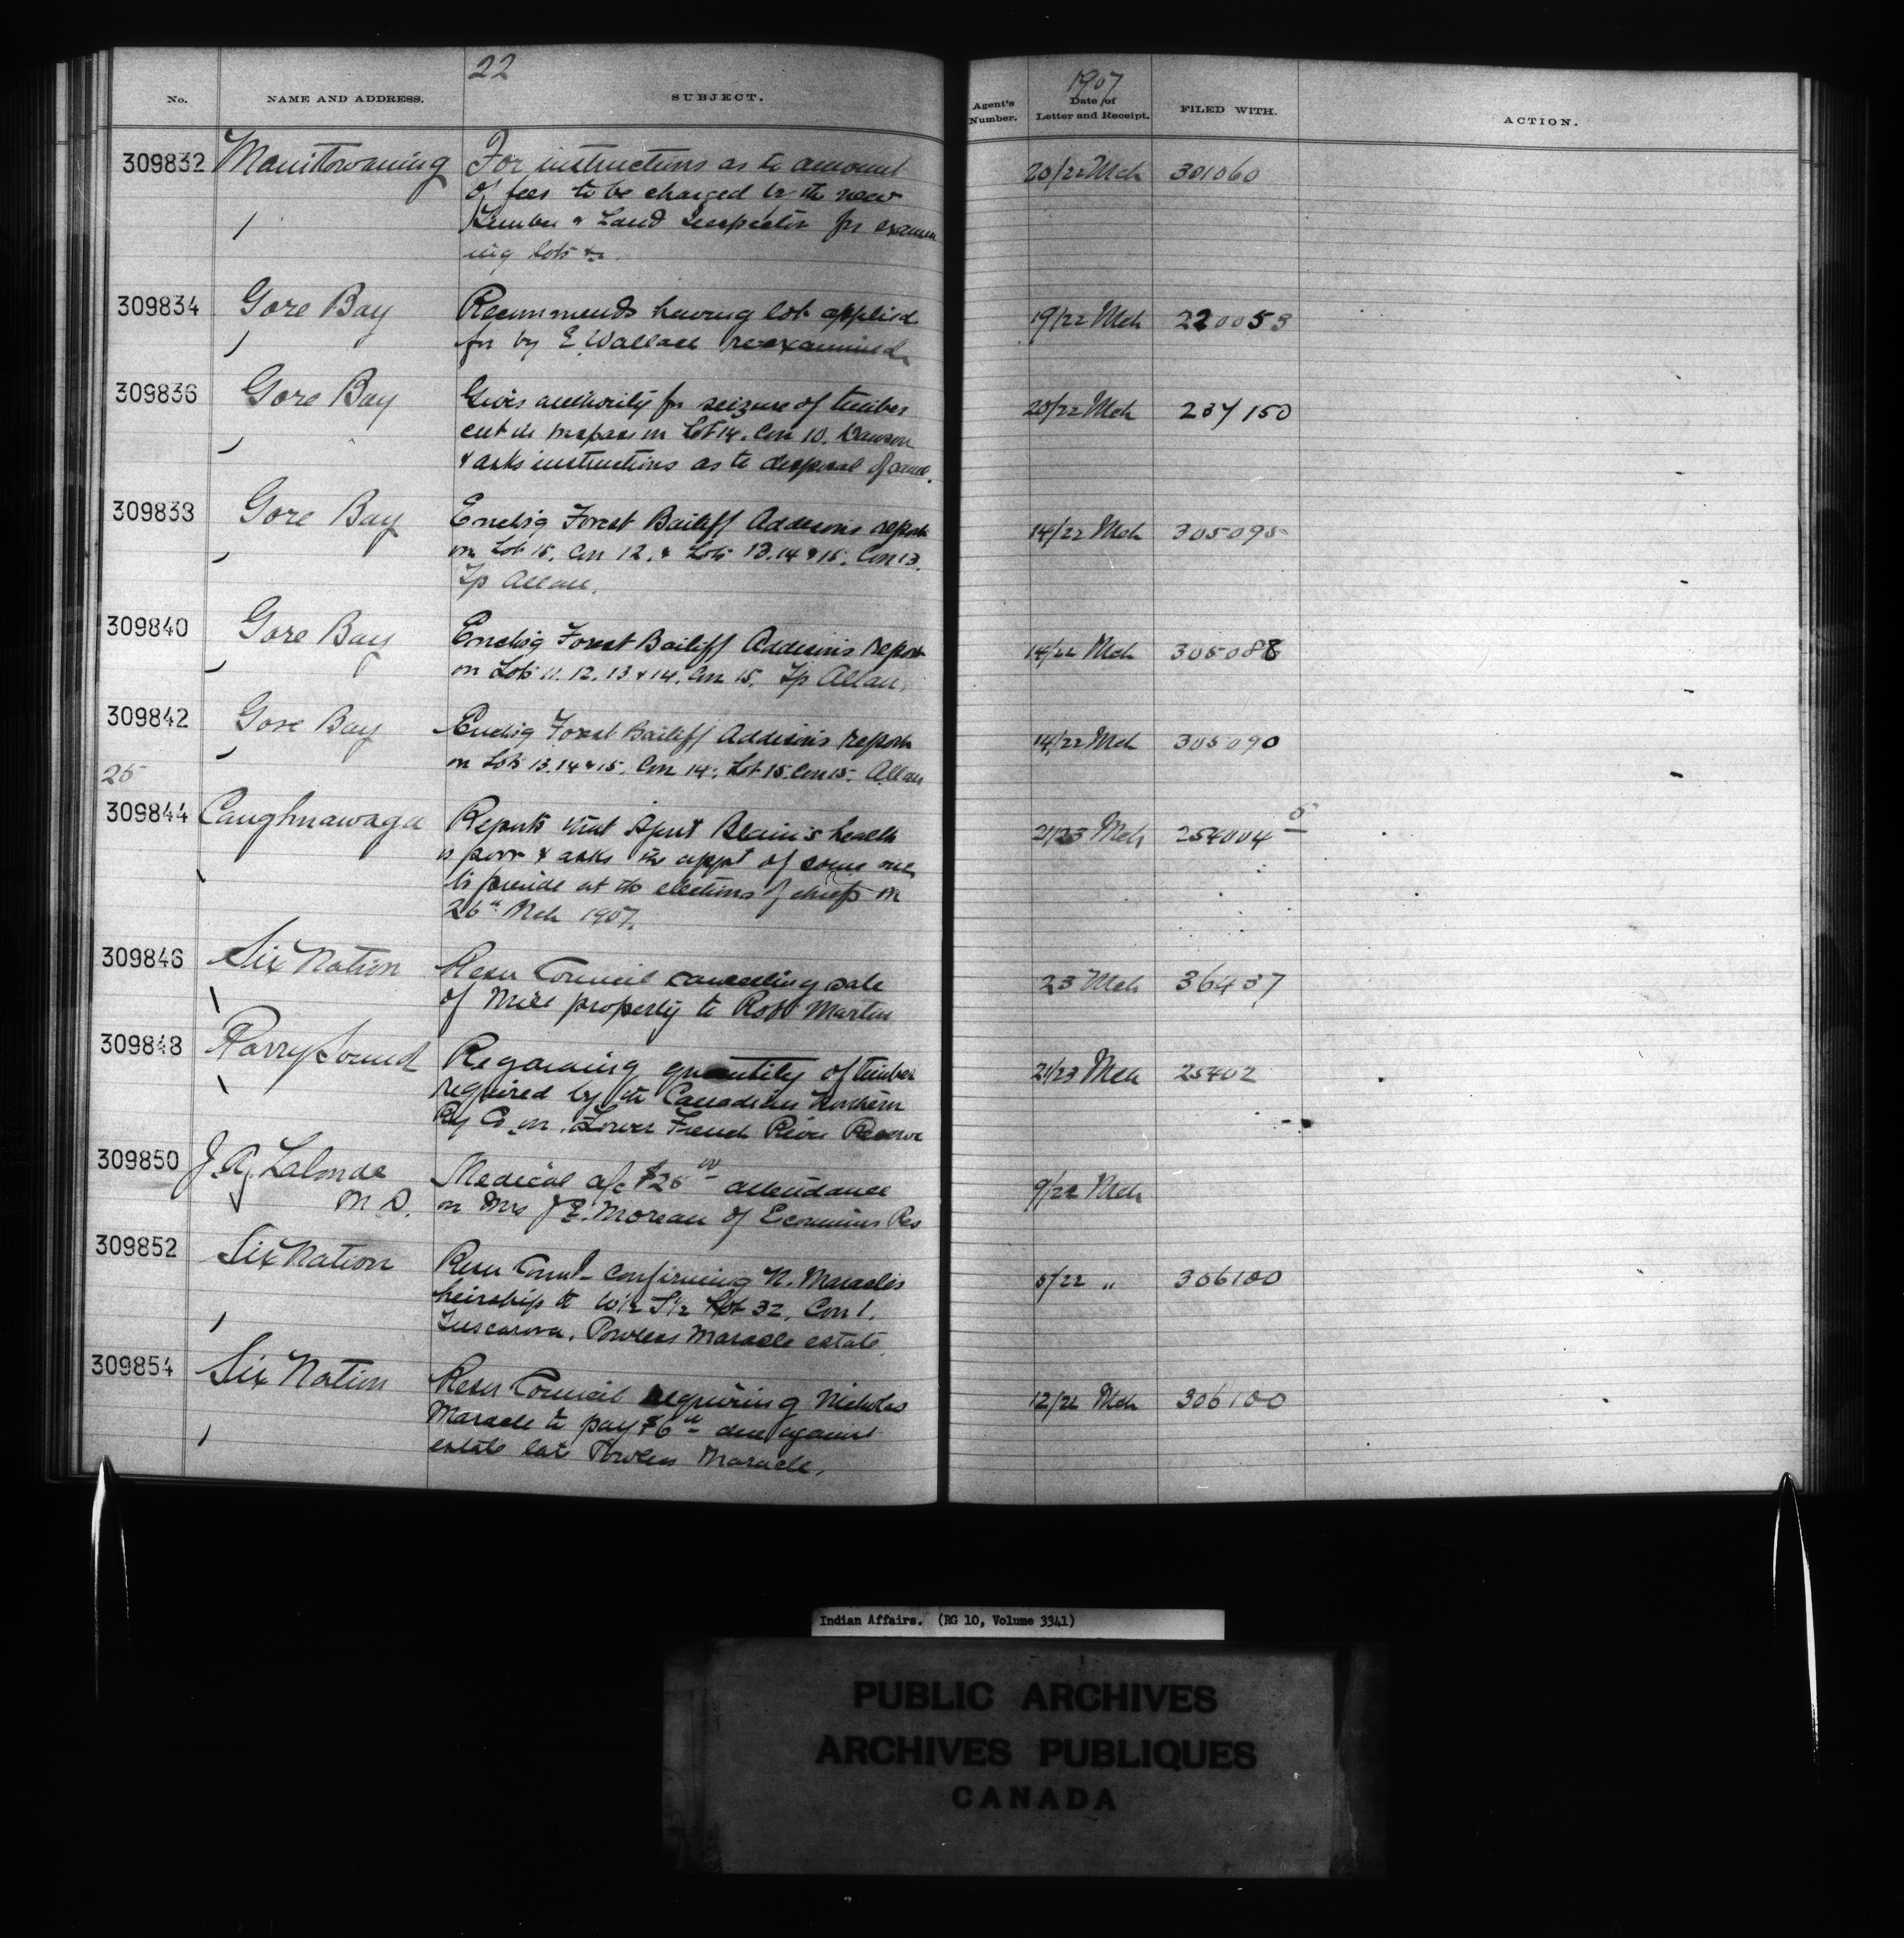 22
1907
No. NAME AND ADDRESS. SUBJECT. Agent's Number. Date of Letter and Receipt. FILED WITH. ACTION.
309832 Manitowaning For instructions as to amount 20/22 Mch 301060
of fees to be charged by the new
Timber & Land Inspector for examin
ing lots &c
309834 Gore Bay Recommends having lot applied 19/22 Mch 220053
for by E. Wallace re-examined
309836 Gore Bay Gives authority for seizure of timber 20/22 Mch 237150
cut in trespass on Lot 14. Con 10. Dawson
& asks instructions as to disposal of same.
309838 Gore Bay Enclsg Forest Bailiff Addison's report 14/22 Mch 305095
on Lot 15, Con 12. & Lots 13.14 & 15. Con 13.
Tp Allan.
309840 Gore Bay Enclsg Forest Bailiff Addison's report 14/22 Mch 305088
on Lots 11. 12. 13 & 14. Con 15. Tp Allan.
309842 Gore Bay Enclsg Forest Bailiff Addison's report 14/22 Mch 305090
on Lots 13.14 & 15. Con 14. Lot 15. Con 15. Allan
25
309844 Caughnawaga Reports that Agent Blain's health 21/23 Mch 254004 5
is poor & asks the appt of some one
to preside at the elections of chiefs on
26th Mch 1907.
309846 Six Nation Resn Council cancelling sale 23 Mch 36437
of Mill property to Robt Martin
309848 Parry Sound Regarding quantity of timber 21/23 Mch 25402
required by the Canadian Northern
Ry Co on Lower French River Reserve
309850 J. A. Lalonde Medical a/c $25 00 attendance 9/22 Mch
M D. on Mrs J E. Moreau of Ecureuins Res
309852 Six Nation Resn Council confirming N. Maracle's 5/22 " 306100
heirship to W 1/2 S 1/2 Lot 32, Con 1.
Tuscarora, Powless Maracle estate.
309854 Six Nation Resn Council requiring Nicholas 12/22 Mch 306100
Maracle to pay $6 due against
estate late Powless Maracle.
Indian Affairs. (RG 10, Volume 3341)
PUBLIC ARCHIVES
ARCHIVES PUBLIQUES
CANADA